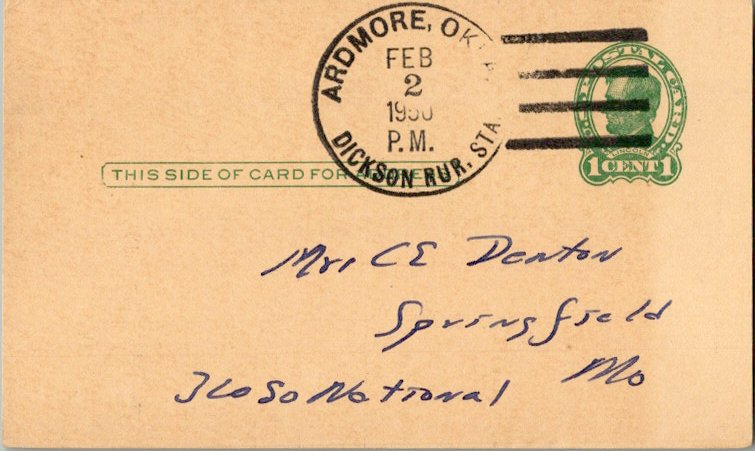 ARDMORE, OKLA.
FEB
2
1950
P.M.
DICKSON RUR. STA.
LINCOLN
1 CENT 1
THIS SIDE OF CARD FOR
Mrs CE Denton
Springfield
Mo
So National